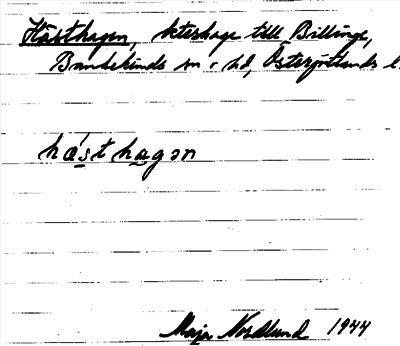 Hästhagen, beteshage till Billinge,
Bankekinds sn o hd, Östergötlands l.
hæsthagən
Maja Nordlund 1944